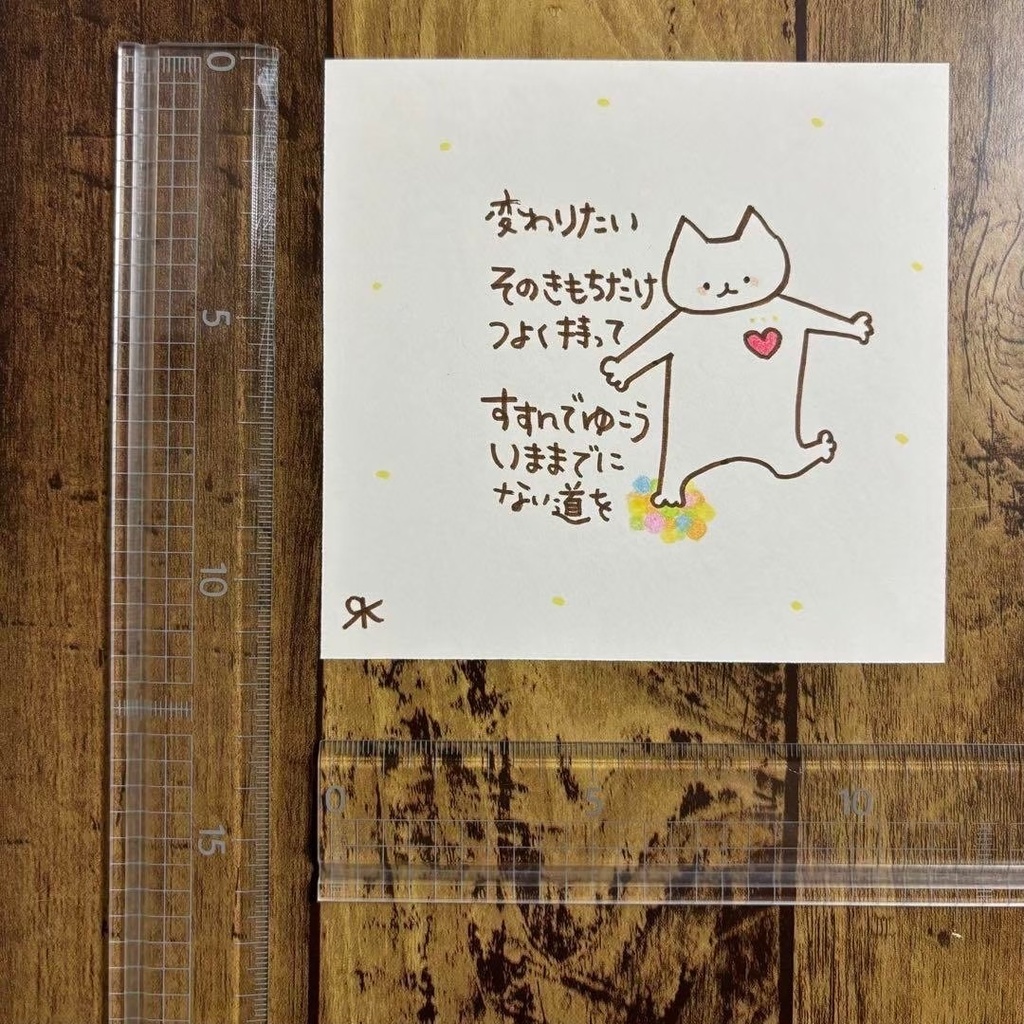 変わりたい
そのきもちだけ
つよく持って
すすんでゆこう
いままでに
ない道を
0
5
10
15
0
5
10